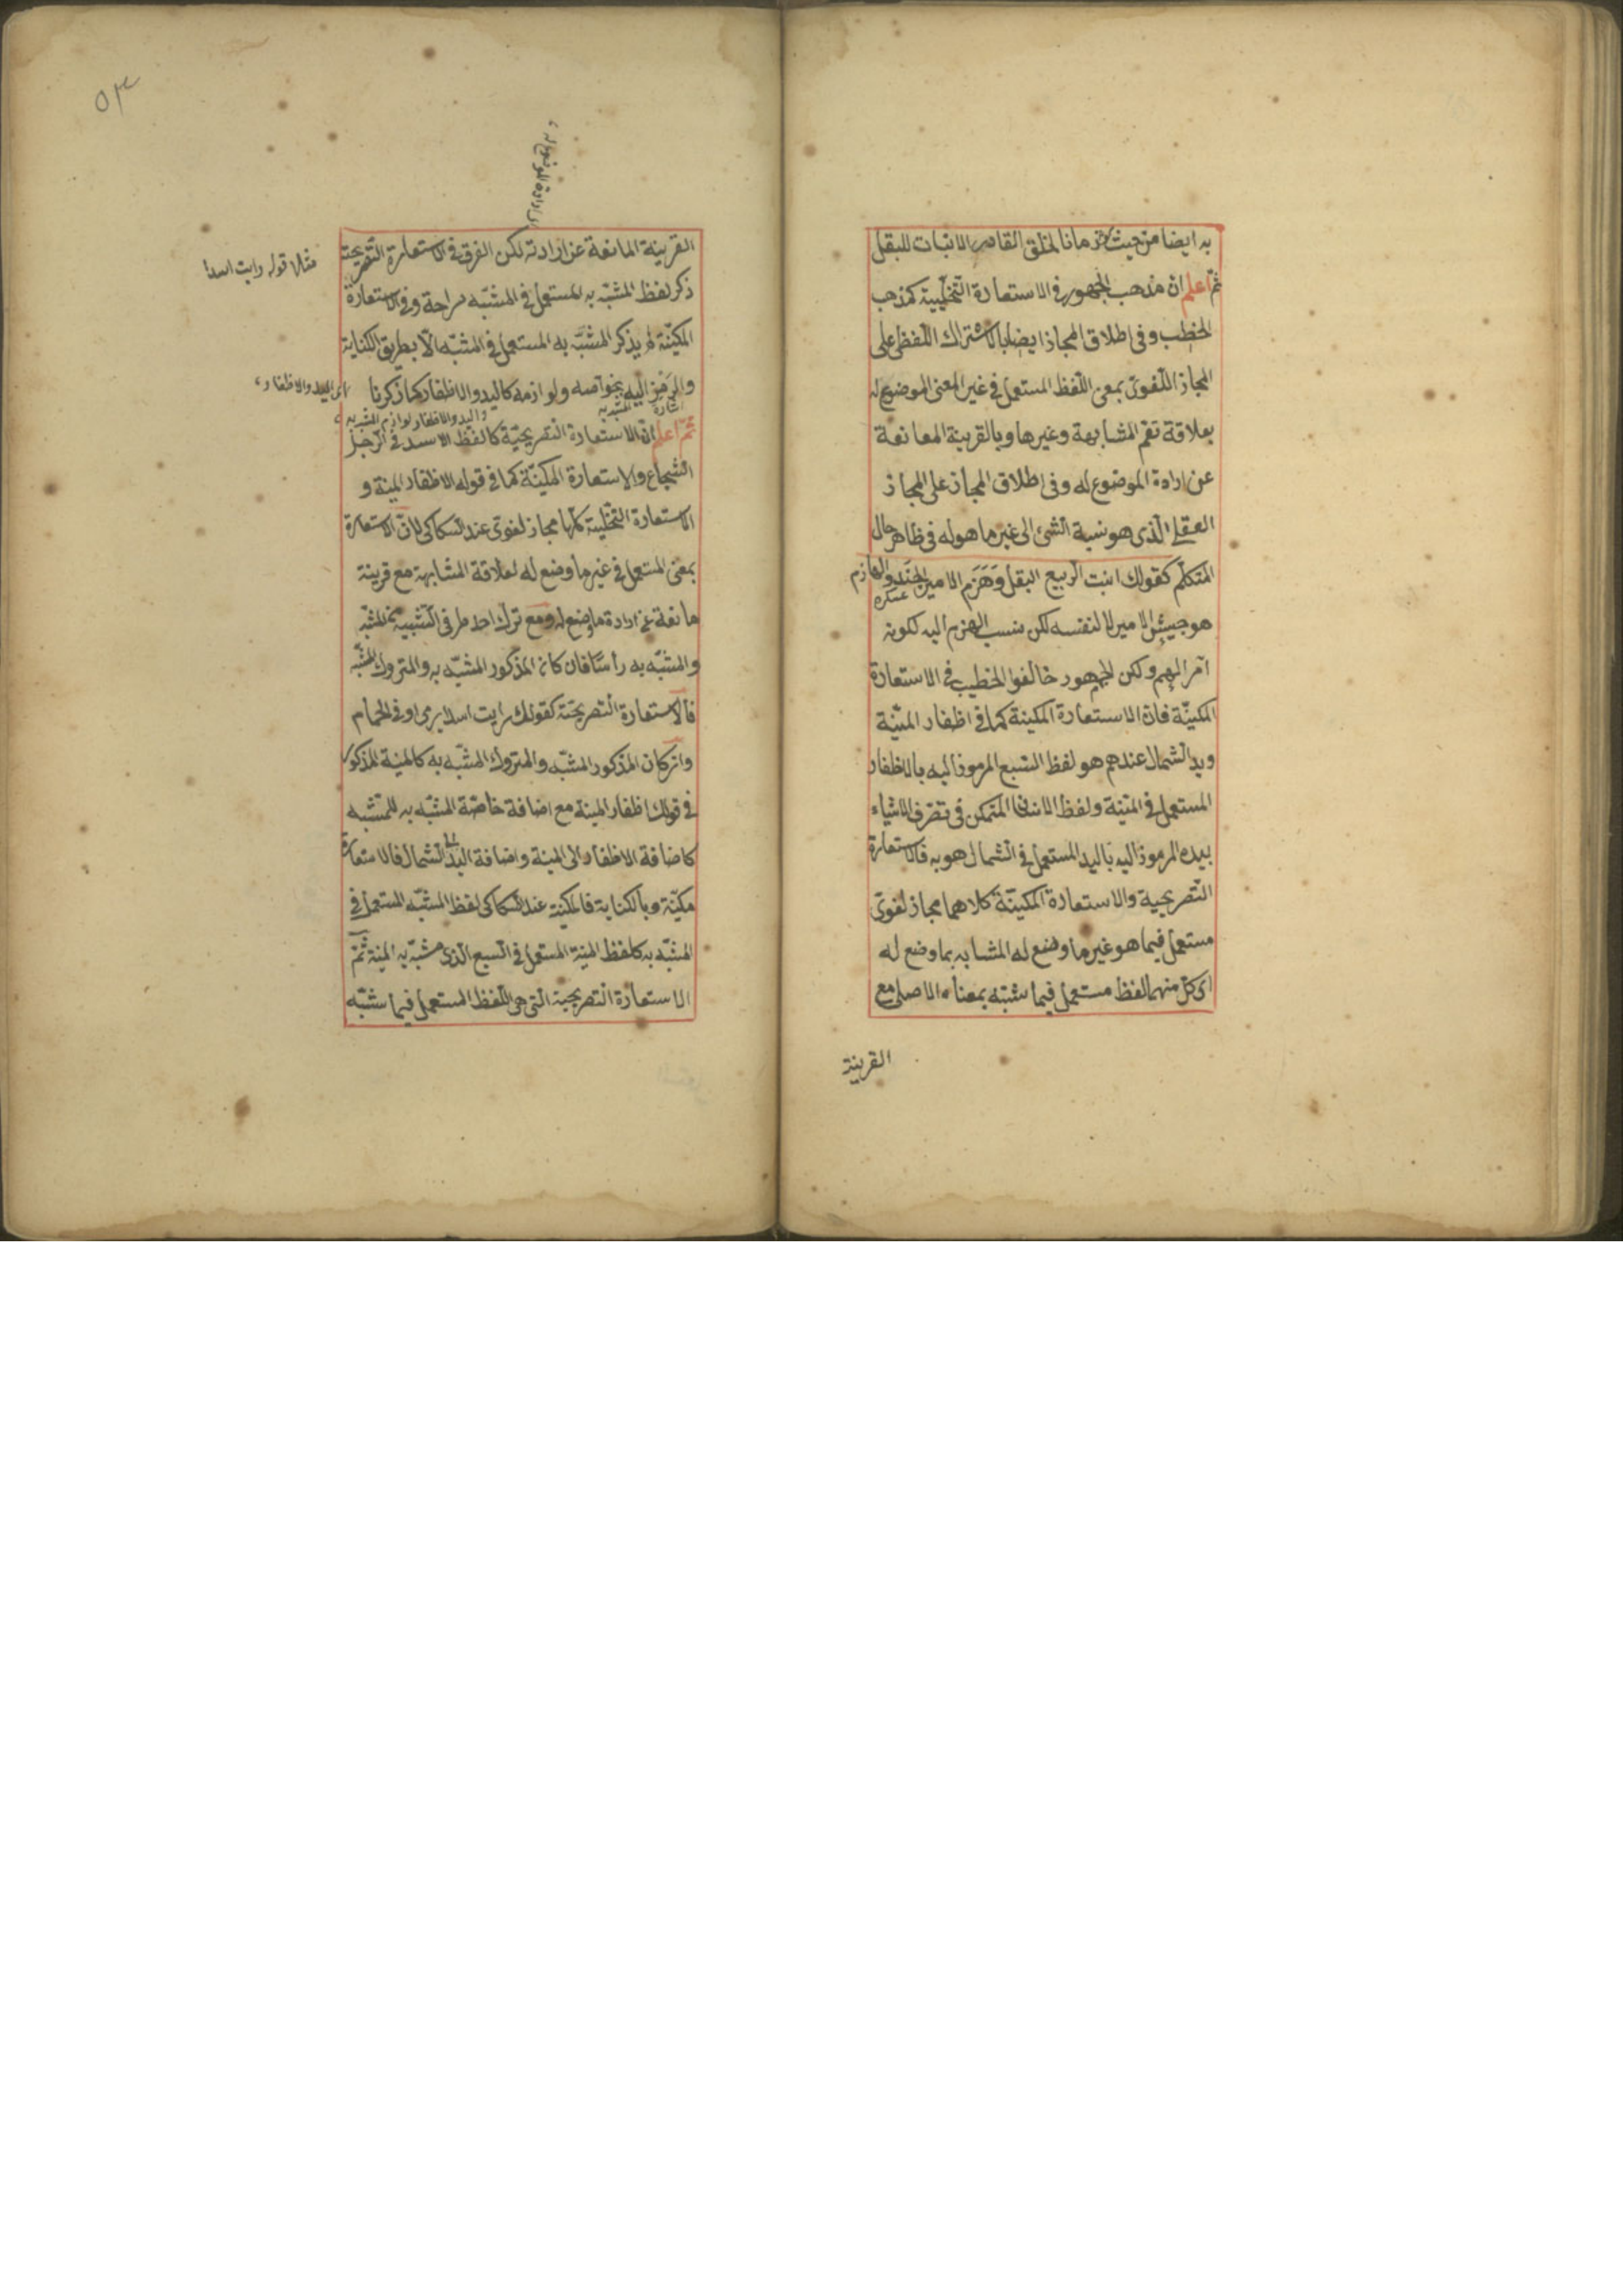 به ايضا من حيث كونه زمانا لخلق القادر الانبات للبقل
ثم اعلم ان مذهب الجمهور فى الاستعارة التخييلية كمذهب
الخطيب وفى اطلاق المجاز ايضا بالاشتراك اللفظى على
المجاز اللغوى بمعنى اللفظ المستعمل فى غير المعنى الموضوع له
بعلاقة تعم المشابهة وغيرها وبالقرينة المانعة
عن ارادة الموضوع له وفى اطلاق المجاز على المجاز
العقلى الذى هو نسبة الشئ الى غير ما هو له فى ظاهر حال
المتكلم كقولك انبت الربيع البقل وهَزَم الامير الجند والهازم
عسكره
هو جيش الامير لا لنفسه لكن ينسب الهزم اليه لكونه
آمر الهزم ولكن الجمهور خالفوا الخطيب فى الاستعارة
المكنيّة فان الاستعارة المكنية كما فى اظفار المنيّة
ويد الشمال عندهم هو لفظ السبع المرموز اليه بالاظفار
المستعمل فى المنية ولفظ الانسان المتمكن فى تصرف الاشياء
بيده المرموز اليه باليد المستعمل فى الشمال هو به فالاستعارة
التصريحية والاستعارة المكنيّة كلاهما مجاز لغوى
مستعمل فيما هو غير ما وضع له المشابه بما وضع له
اى كل منهما لفظ مستعمل فيما شبّه بمعناه الاصلى مع
القرينة
٥٣
القرينة المانعة عن ارادته لكن الفرق فى الاستعارة التصريحية
مثلا قوله رايت اسدا
ذكر لفظ المشبّه به المستعمل فى المشبّه صراحة وفى الاستعارة
المكنيّة لم يذكر المشبّه به المستعمل فى المشبّه الا بطريق الكناية
والرَمْز اليه بخواصه ولوازمه كاليد والاظفار كما ذكرنا
اى اليد والاظفار
اشارة المشبه به
واليد والاظفار لوازم المشبه به
ثمّ اعلم ان الاستعارة التصريحيّة كالفظ الاسد فى الرجل
الشجاع والاستعارة المكنيّة كما فى قوله الاظفار المنية و
الاستعارة التخييلية كلها مجاز لغوى عند السكاكى لان الاستعارة
بمعنى المستعمل فى غير ما وضع له لعلاقة المشابهة مع قرينة
مانعة عن ارادة ما وضع له ومع ترك احد طرفى التشبيه من المشبّه
والمشبّه به رأسًا فان كان المذكور المشبّه به والمتروك المشبّه
فالاستعارة التصريحيّة كقولك رايت اسدا يرمى او فى الحمام
وان كان المذكور المشبّه والمتروك المشبّه به كالمنية المذكور
فى قولك اظفار المنية مع اضافة خاصّة المشبّه به للمشبه
كاضافة الاظفار الى المنية واضافة اليد الى الشمال فالاستعارة
مكنيّة وبالكناية فالمكنية عند السكاكى لفظ المشبّه المستعمل فى
المشبّه به كلفظ المنية المستعمل فى السبع الذى مشبّه به المنية ثمّ
الاستعارة التصريحية التى هى اللفظ المستعمل فيما شبّه